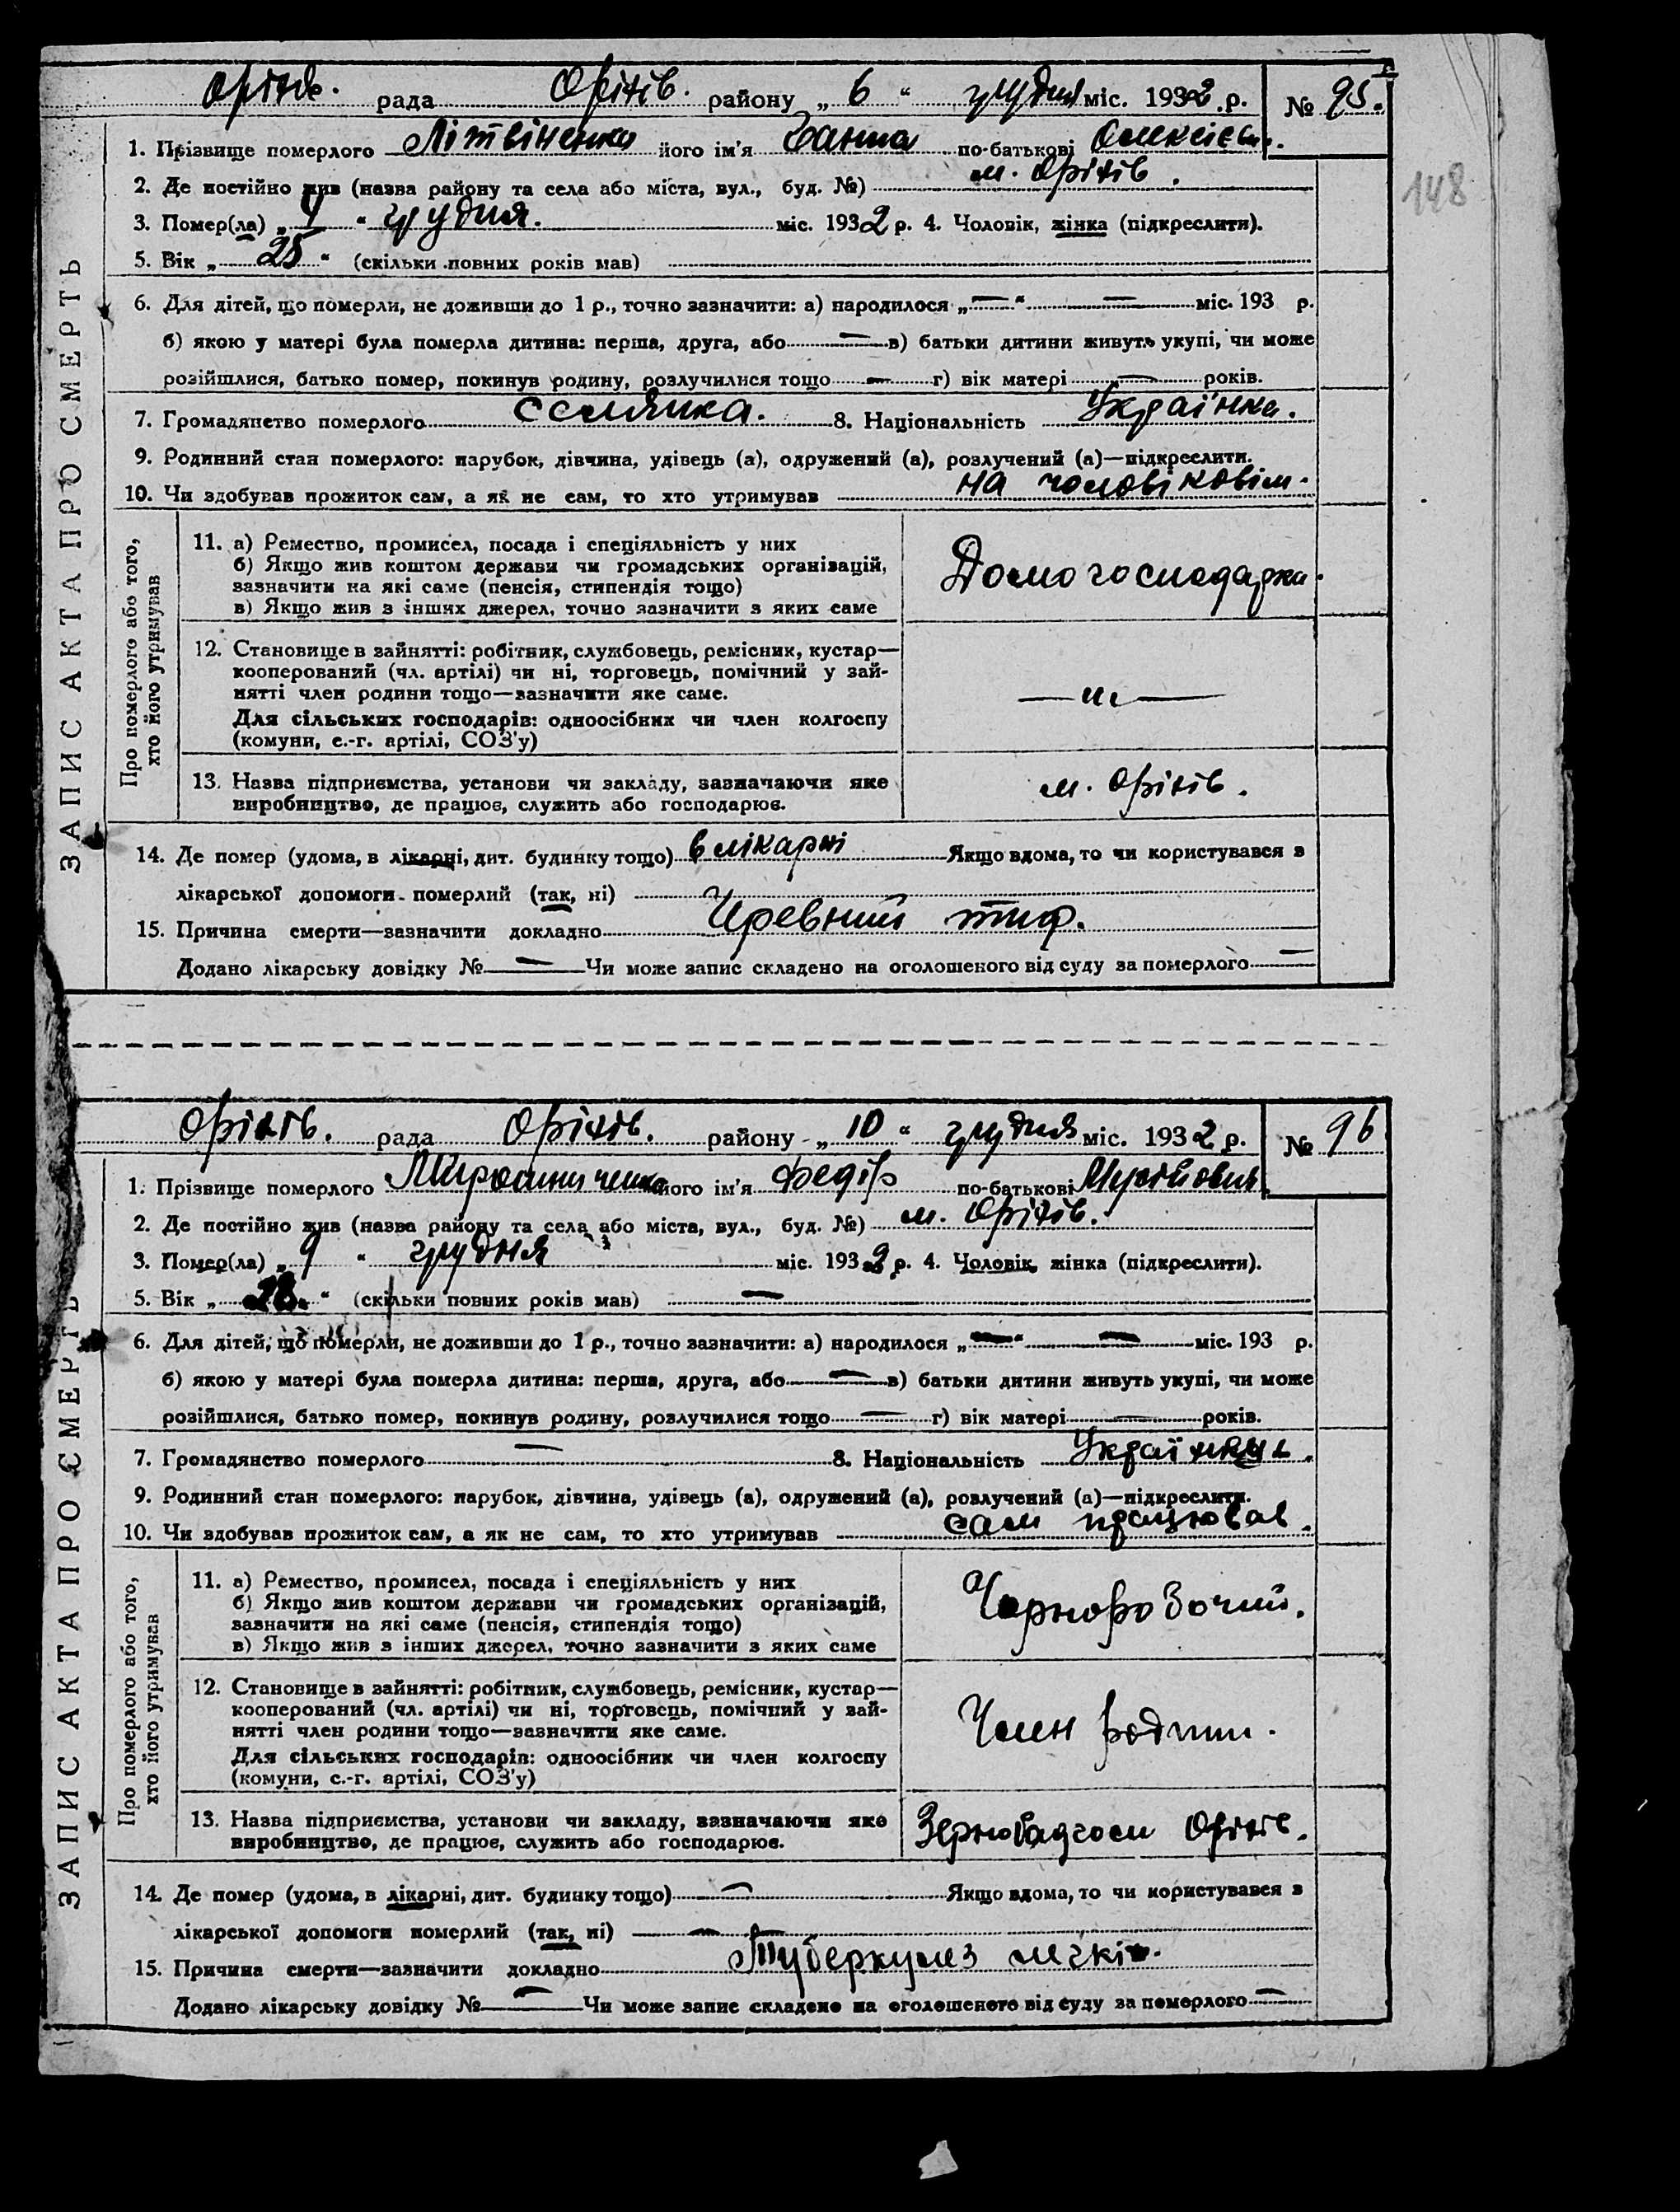 Оріхів. рада Оріхів. району „ 6 “ грудня міс. 1932 р. № 95.
148
1. Прізвище померлого Літвіненко його ім'я Ганна по-батькові Олексієв.
2. Де постійно жив (назва району та села або міста, вул., буд. №) м. Оріхів.
3. Помер(ла) „ 4 “ грудня. міс. 1932 р. 4. Чоловік, жінка (підкреслити).
5. Вік „ 25 “ (скільки повних років мав)
6. Для дітей, що померли, не доживши до 1 р., точно зазначити: а) народилося „ — “ — міс. 193 р.
б) якою у матері була померла дитина: перша, друга, або — в) батьки дитини живуть укупі, чи може
розійшлися, батько помер, покинув родину, розлучилися тощо — г) вік матері — років.
7. Громадянство померлого селянка. 8. Національність Українка.
9. Родинний стан померлого: парубок, дівчина, удівець (а), одружений (а), розлучений (а)—підкреслити.
10. Чи здобував прожиток сам, а як не сам, то хто утримував на чоловіковім.
ЗАПИС АКТА ПРО СМЕРТЬ
Про померлого або того,
хто його утримував
11. а) Ремество, промисел, посада і спеціяльність у них
б) Якщо жив коштом держави чи громадських організацій,
зазначити на які саме (пенсія, стипендія тощо)
в) Якщо жив з інших джерел, точно зазначити з яких саме
Домогосподарка.
12. Становище в зайнятті: робітник, службовець, ремісник, кустар—
кооперований (чл. артілі) чи ні, торговець, помічний у зай-
нятті член родини тощо—зазначити яке саме.
Для сільських господарів: одноосібник чи член колгоспу
(комуни, с.-г. артілі, СОЗ'у)
— „ —
13. Назва підприємства, установи чи закладу, зазначаючи яке
виробництво, де працює, служить або господарює.
м. Оріхів.
14. Де помер (удома, в лікарні, дит. будинку тощо) в лікарні Якщо вдома, то чи користувався з
лікарської допомоги померлий (так, ні)
15. Причина смерти—зазначити докладно Черевний тиф.
Додано лікарську довідку № — Чи може запис складено на оголошеного від суду за померлого —
Оріхів. рада Оріхів. району „ 10 “ грудня міс. 1932 р. № 96
1. Прізвище померлого Мирошниченко його ім'я Федір по-батькові Мусійович.
2. Де постійно жив (назва району та села або міста, вул., буд. №) м. Оріхів.
3. Помер(ла) „ 9 “ грудня міс. 1932 р. 4. Чоловік, жінка (підкреслити).
5. Вік „ 28. “ (скільки повних років мав) —
6. Для дітей, що померли, не доживши до 1 р., точно зазначити: а) народилося „ — “ — міс. 193 р.
б) якою у матері була померла дитина: перша, друга, або — в) батьки дитини живуть укупі, чи може
розійшлися, батько помер, покинув родину, розлучилися тощо — г) вік матері — років.
7. Громадянство померлого — 8. Національність
9. Родинний стан померлого: парубок, дівчина, удівець (а), одружений (а), розлучений (а)—підкреслити.
10. Чи здобував прожиток сам, а як не сам, то хто утримував сам працював.
ЗАПИС АКТА ПРО СМЕРТЬ
Про померлого або того,
хто його утримував
11. а) Ремество, промисел, посада і спеціяльність у них
б) Якщо жив коштом держави чи громадських організацій,
зазначити на які саме (пенсія, стипендія тощо)
в) Якщо жив з інших джерел, точно зазначити з яких саме
Чорноробочий.
12. Становище в зайнятті: робітник, службовець, ремісник, кустар—
кооперований (чл. артілі) чи ні, торговець, помічний у зай-
нятті член родини тощо—зазначити яке саме.
Для сільських господарів: одноосібник чи член колгоспу
(комуни, с.-г. артілі, СОЗ'у)
Член родини.
13. Назва підприємства, установи чи закладу, зазначаючи яке
виробництво, де працює, служить або господарює.
Зернорадгосп Оріхів.
14. Де помер (удома, в лікарні, дит. будинку тощо) — Якщо вдома, то чи користувався з
лікарської допомоги померлий (так, ні) —
15. Причина смерти—зазначити докладно Туберкульоз легкіх.
Додано лікарську довідку № — Чи може запис складено на оголошеного від суду за померлого —